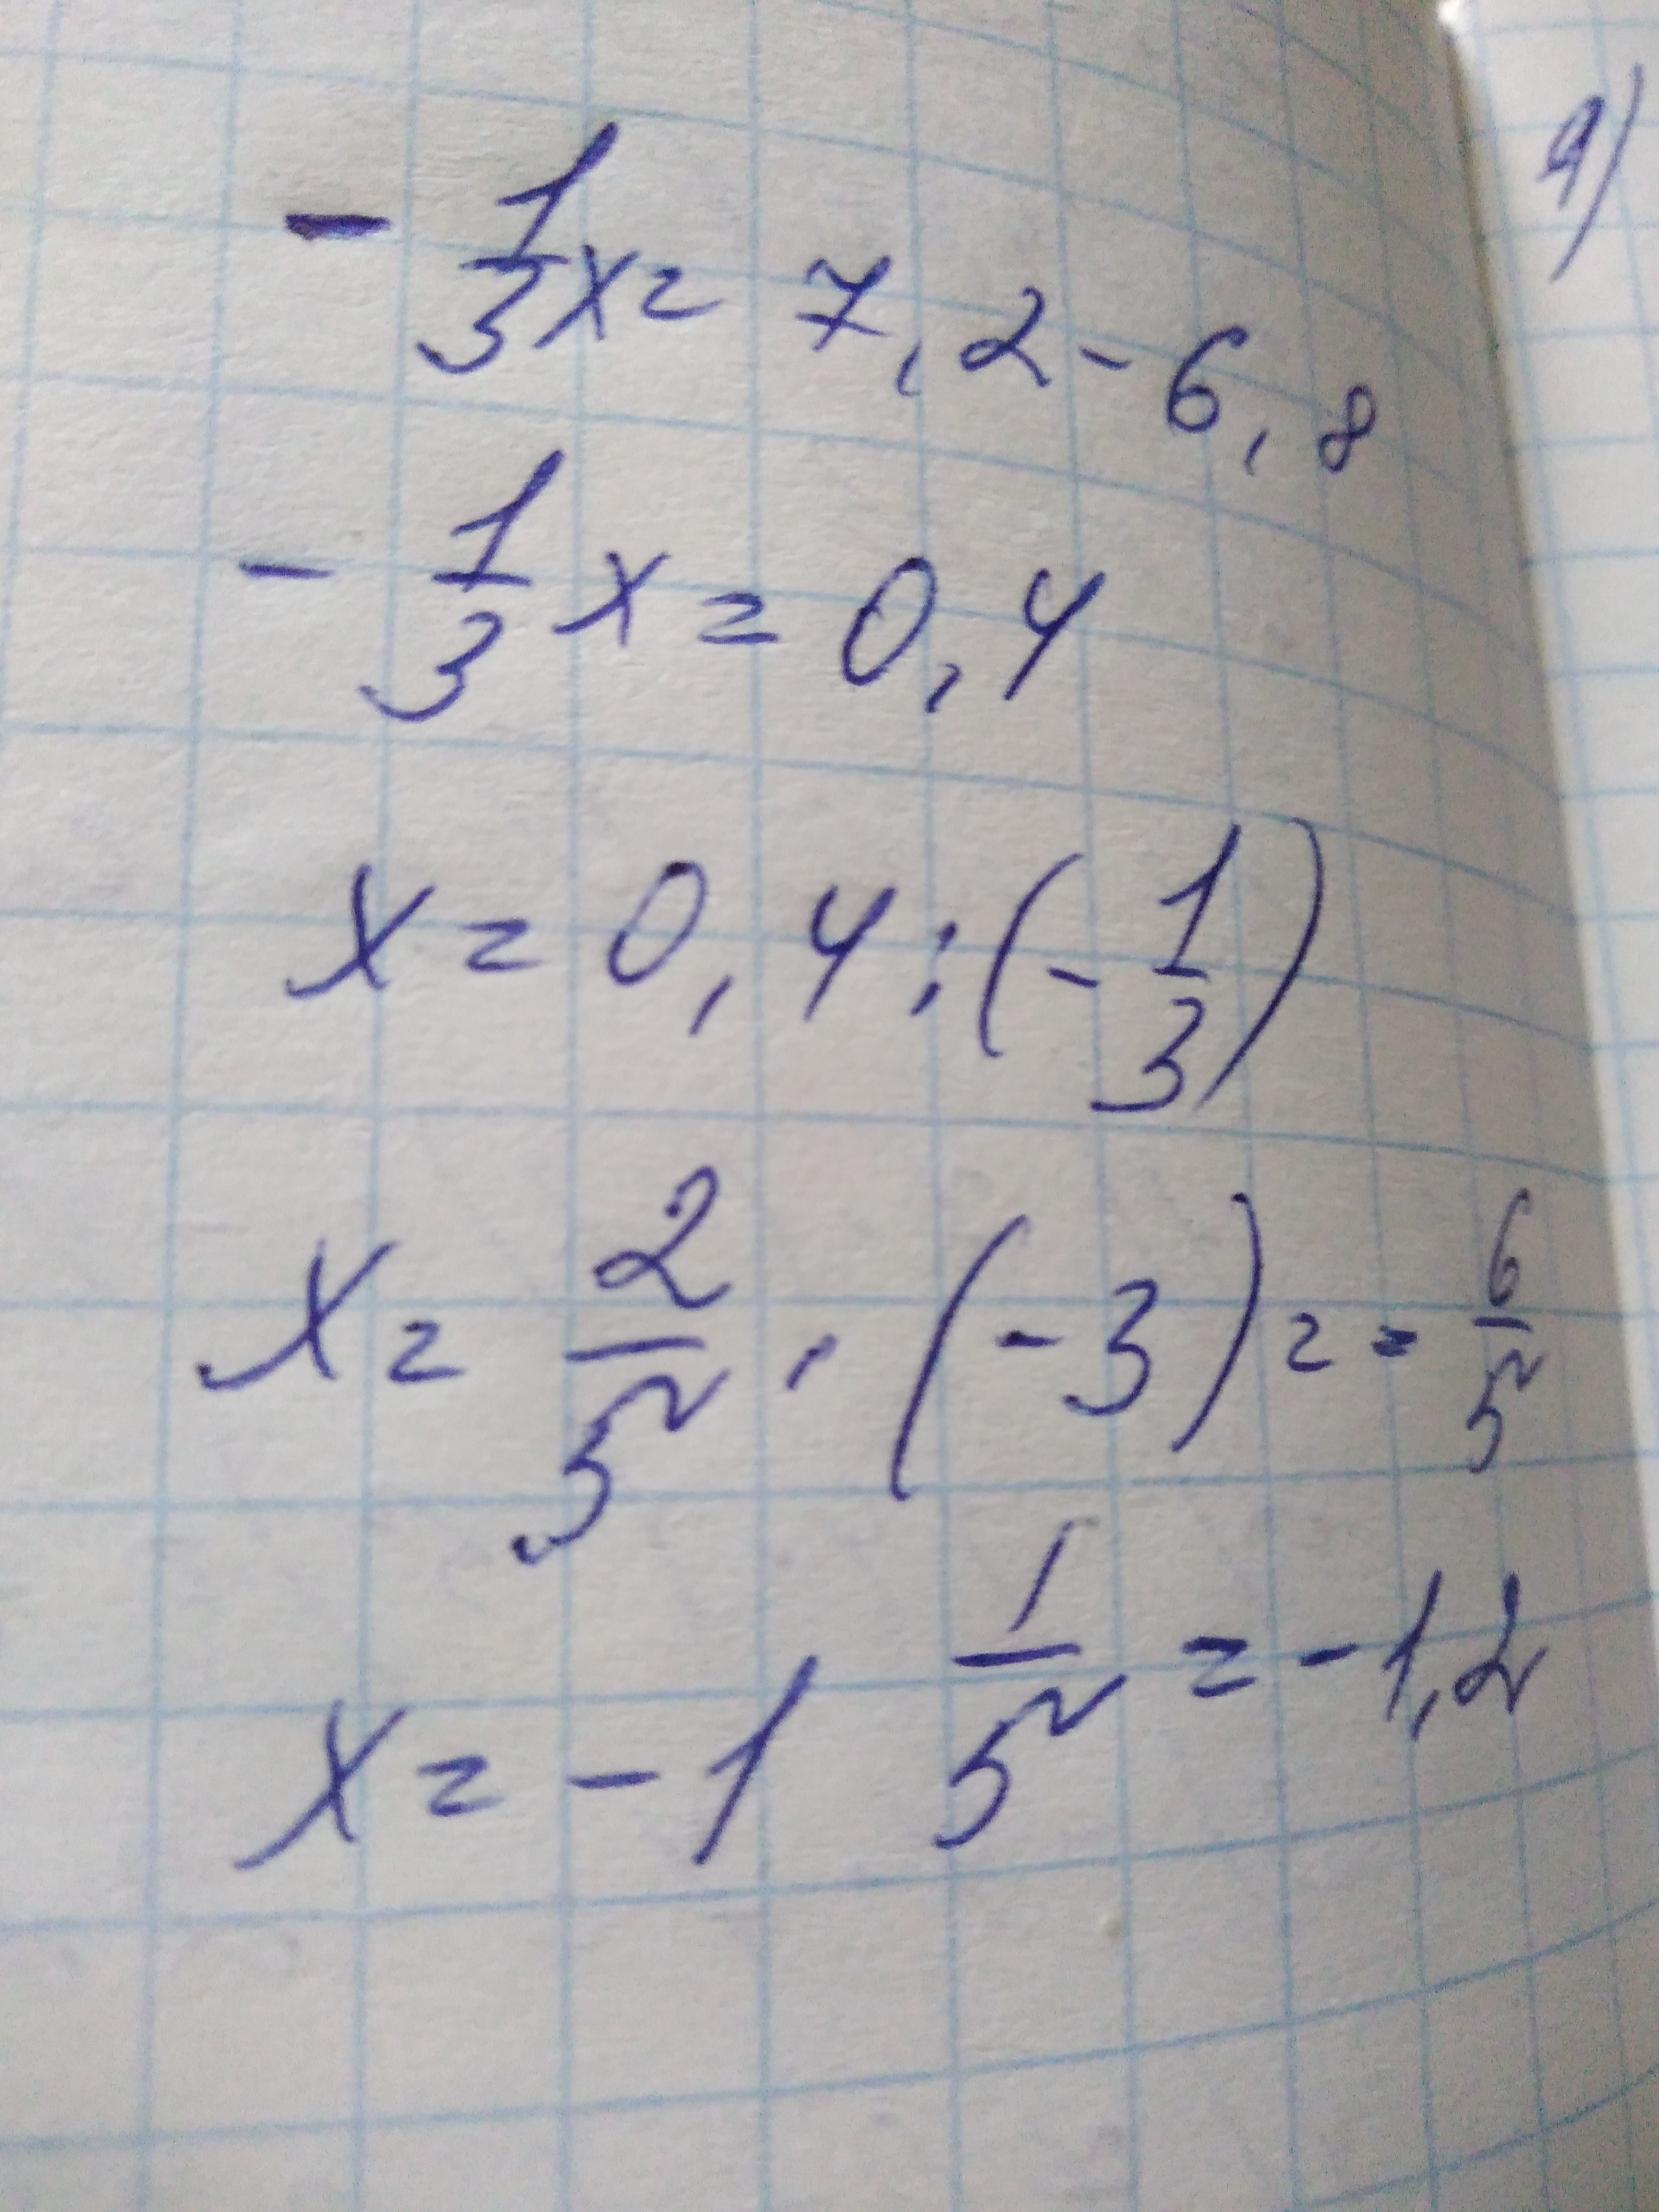 - 1/3 x = 7,2 - 6,8
- 1/3 x = 0,4
x = 0,4 : (- 1/3)
x = 2/5 · (-3) = - 6/5
x = -1 1/5 = -1,2